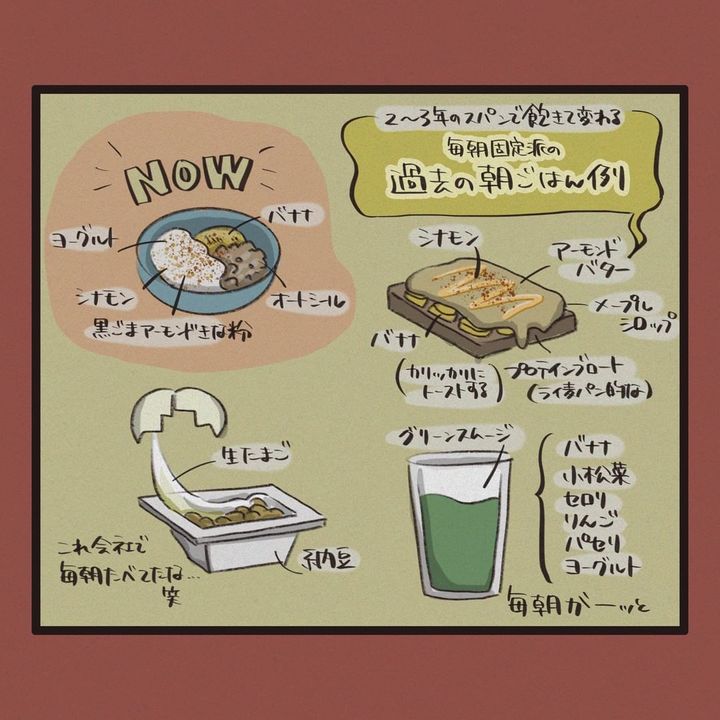 2〜3年のスパンで飽きて変わる
毎朝固定派の
過去の朝ごはん例
NOW
バナナ
ヨーグルト
シナモン
オートシール
黒ごまアーモンドきな粉
シナモン
アーモンド
バター
メープル
シロップ
バナナ
(カリッカリに
トーストする)
プロテインブロート
(ライ麦パン的な)
生たまご
納豆
これ会社で
毎朝たべてたな…
笑
グリーンスムージ
バナナ
小松菜
セロリ
りんご
パセリ
ヨーグルト
毎朝がーッと